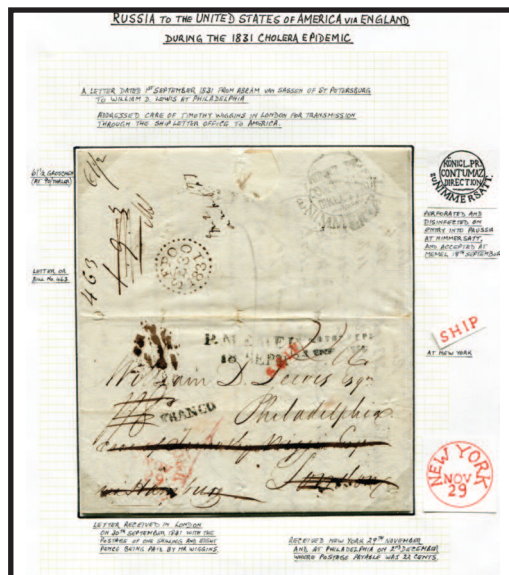 RUSSIA TO THE UNITED STATES OF AMERICA VIA ENGLAND
DURING THE 1831 CHOLERA EPIDEMIC
A LETTER DATED 1ST SEPTEMBER 1831 FROM ABRAM VAN SASSEN OF ST. PETERSBURG
TO WILLIAM D. LEWIS AT PHILADELPHIA
ADDRESSED CARE OF TIMOTHY WIGGINS IN LONDON FOR TRANSMISSION
THROUGH THE SHIP LETTER OFFICE TO AMERICA.
6½ GROSCHEN
LETTER OR
BILL NO. 463
463
KÖNIGL. PR.
CONTUMAZ
DIRECTION
ZU NIMMERSATT.
PERFORATED AND
DISINFECTED ON
ENTRY INTO PRUSSIA
AT NIMMERSATT,
AND ACCEPTED AT
MEMEL 18TH SEPTEMBER
SHIP
AT NEW YORK
William D. Lewis Esqr
Philadelphia
FRANCO
London
via Hamburg
NEW YORK
NOV
29
LETTER RECEIVED IN LONDON
ON 30TH SEPTEMBER 1831 WITH THE
POSTAGE OF ONE SHILLING AND EIGHT
PENCE BEING PAID BY MR. WIGGINS.
RECEIVED NEW YORK 29TH NOVEMBER
AND AT PHILADELPHIA ON 2ND DECEMBER
WHERE POSTAGE PAYABLE WAS 22 CENTS.